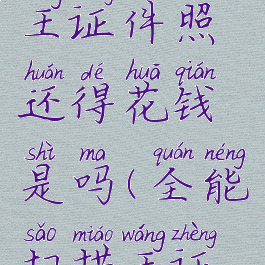 王证件照
huán dé huā qián
还得花钱
shì ma quán néng
是吗(全能
sǎo miáo wáng zhèng
扫描王证